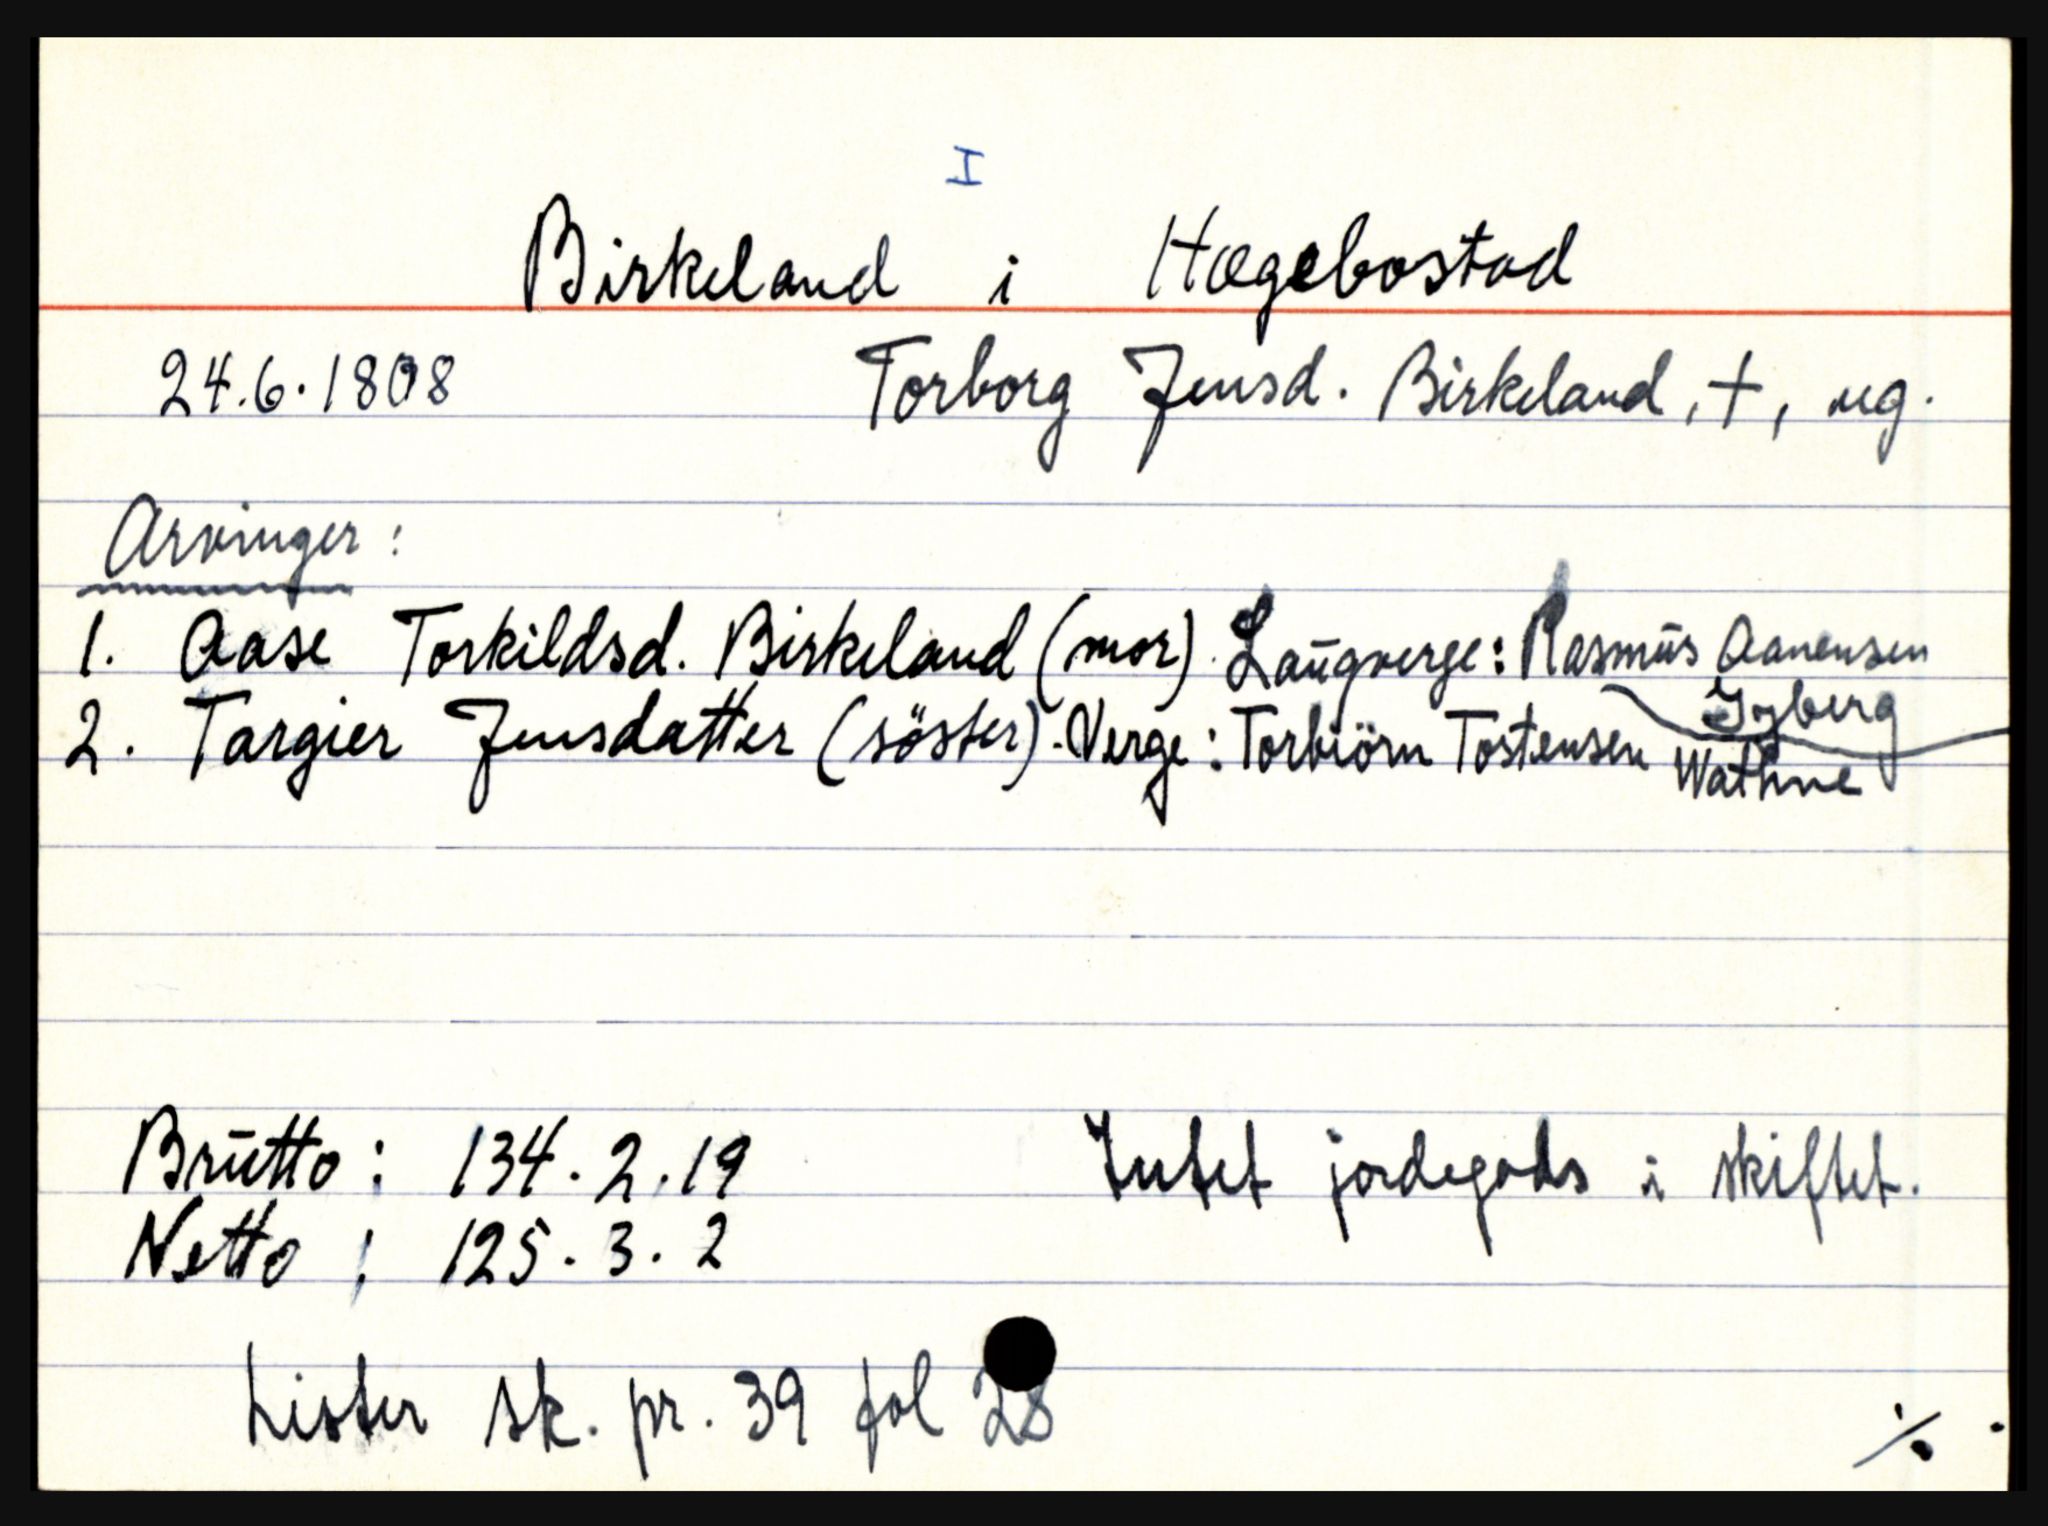 I
Birkeland i Hægebostad
24.6.1808 Torborg Jensd. Birkeland, +, ug.
Arvinger:
1. Aase Torkildsd. Birkeland (mor). Laugverge: Rasmus Aanensen Gyberg
2. Targier Jensdatter (söster). Verge: Torbiörn Tostensen Wathne
Brutto: 134.2.19 Intet jordegods i skiftet.
Netto: 125.3.2
Lister sk. pr. 39 fol 28
./.